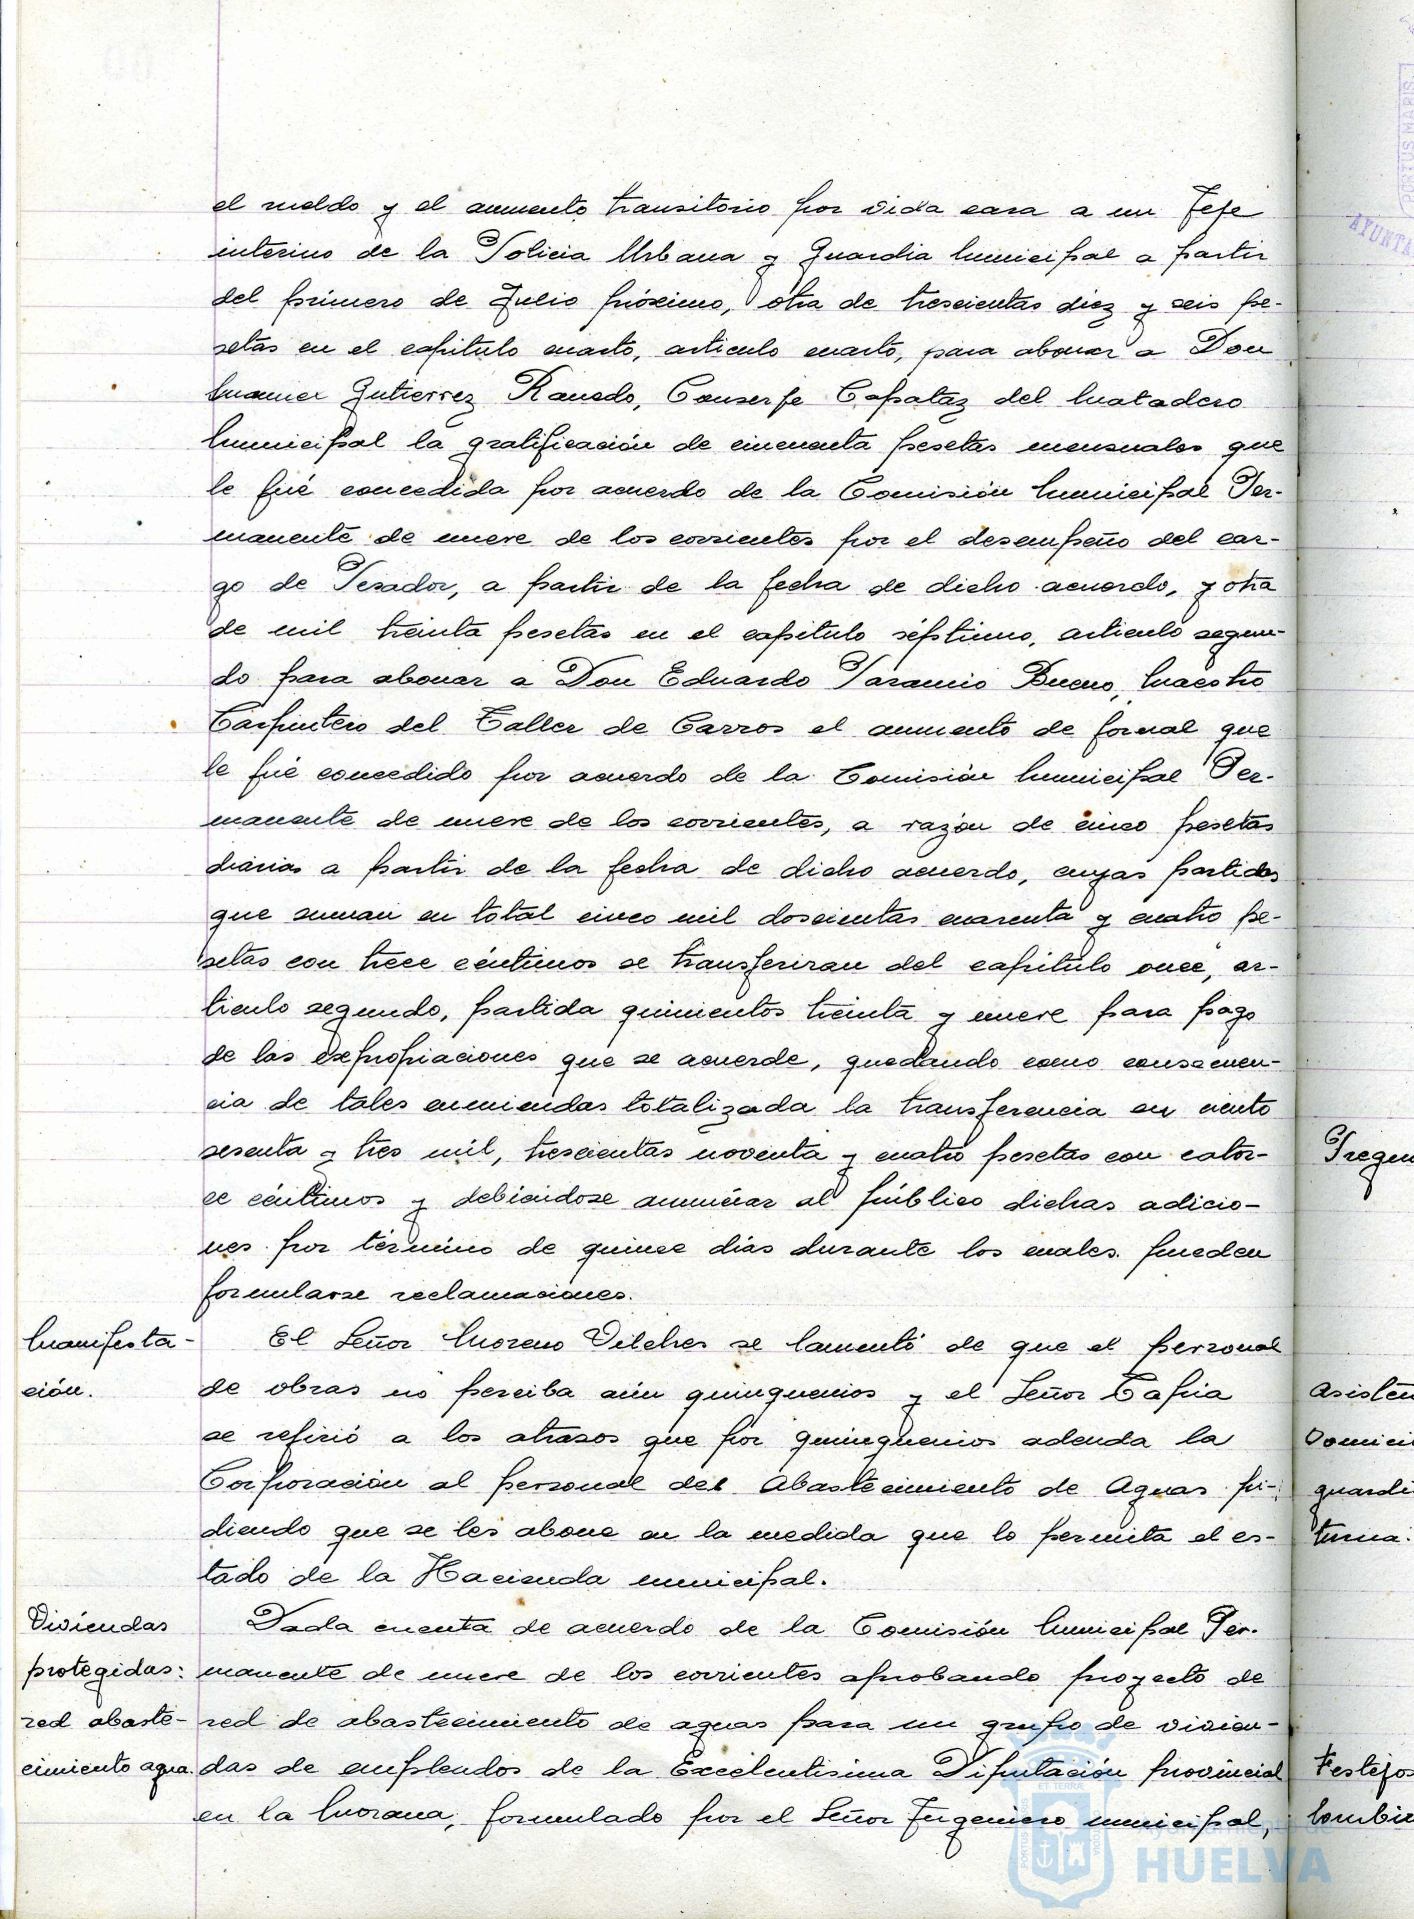 el sueldo y el aumento transitorio por vida cara a un Jefe
interino de la Policia Urbana y Guardia Municipal a partir
del primero de Julio próximo, otra de trescientas diez y seis pe-
setas en el capitulo cuarto, articulo cuarto, para abonar a Don
Manuel Gutierrez Ranedo, Conserje Capataz del Matadero
Municipal la gratificación de cincuenta pesetas mensuales que
le fué concedida por acuerdo de la Comisión Municipal Per-
manente de nueve de los corrientes por el desempeño del car-
go de Pesador, a partir de la fecha de dicho acuerdo, y otra
de mil treinta pesetas en el capitulo séptimo, articulo segun-
do para abonar a Don Eduardo Bueno, Maestro
Carpintero del Taller de Carros el aumento de jornal que
le fué concedido por acuerdo de la Comisión Municipal Per-
manente de nueve de los corrientes, a razón de cinco pesetas
diarias a partir de la fecha de dicho acuerdo, cuyas partidas
que suman en total cinco mil doscientas cuarenta y cuatro pe-
setas con trece céntimos se transferiran del capitulo once, ar-
ticulo segundo, partida quinientos treinta y nueve para pago
de las expropiaciones que se acuerde, quedando como consecuen-
cia de tales enmiendas totalizada la transferencia en ciento
sesenta y tres mil, trescientas noventa y cuatro pesetas con cator-
ce céntimos y debiéndose anunciar al público dichas adicio-
nes por término de quince dias durante los cuales pueden
formularse reclamaciones.
Manifesta-
ción.
El Señor Moreno Vilches se lamentó de que el personal
de obras no perciba aún quinquenios y el Señor Tapia
se refirió a los atrasos que por quinquenios adeuda la
Corporación al personal del Abastecimiento de Aguas pi-
diendo que se les abone en la medida que lo permita el es-
tado de la Hacienda municipal.
Viviendas
protegidas:
red abaste-
cimiento agua.
Dada cuenta de acuerdo de la Comisión Municipal Per-
manente de nueve de los corrientes aprobando proyecto de
red de abastecimiento de aguas para un grupo de vivien-
das de empleados de la Excelentisima Diputación provincial
en la Morana, formulado por el Señor Ingeniero municipal,
Pregun
Asisten
Domici
guardi
turna.
Festejos
PORTUS MARIS
AYUNTA
Ayuntamiento de
HUELVA